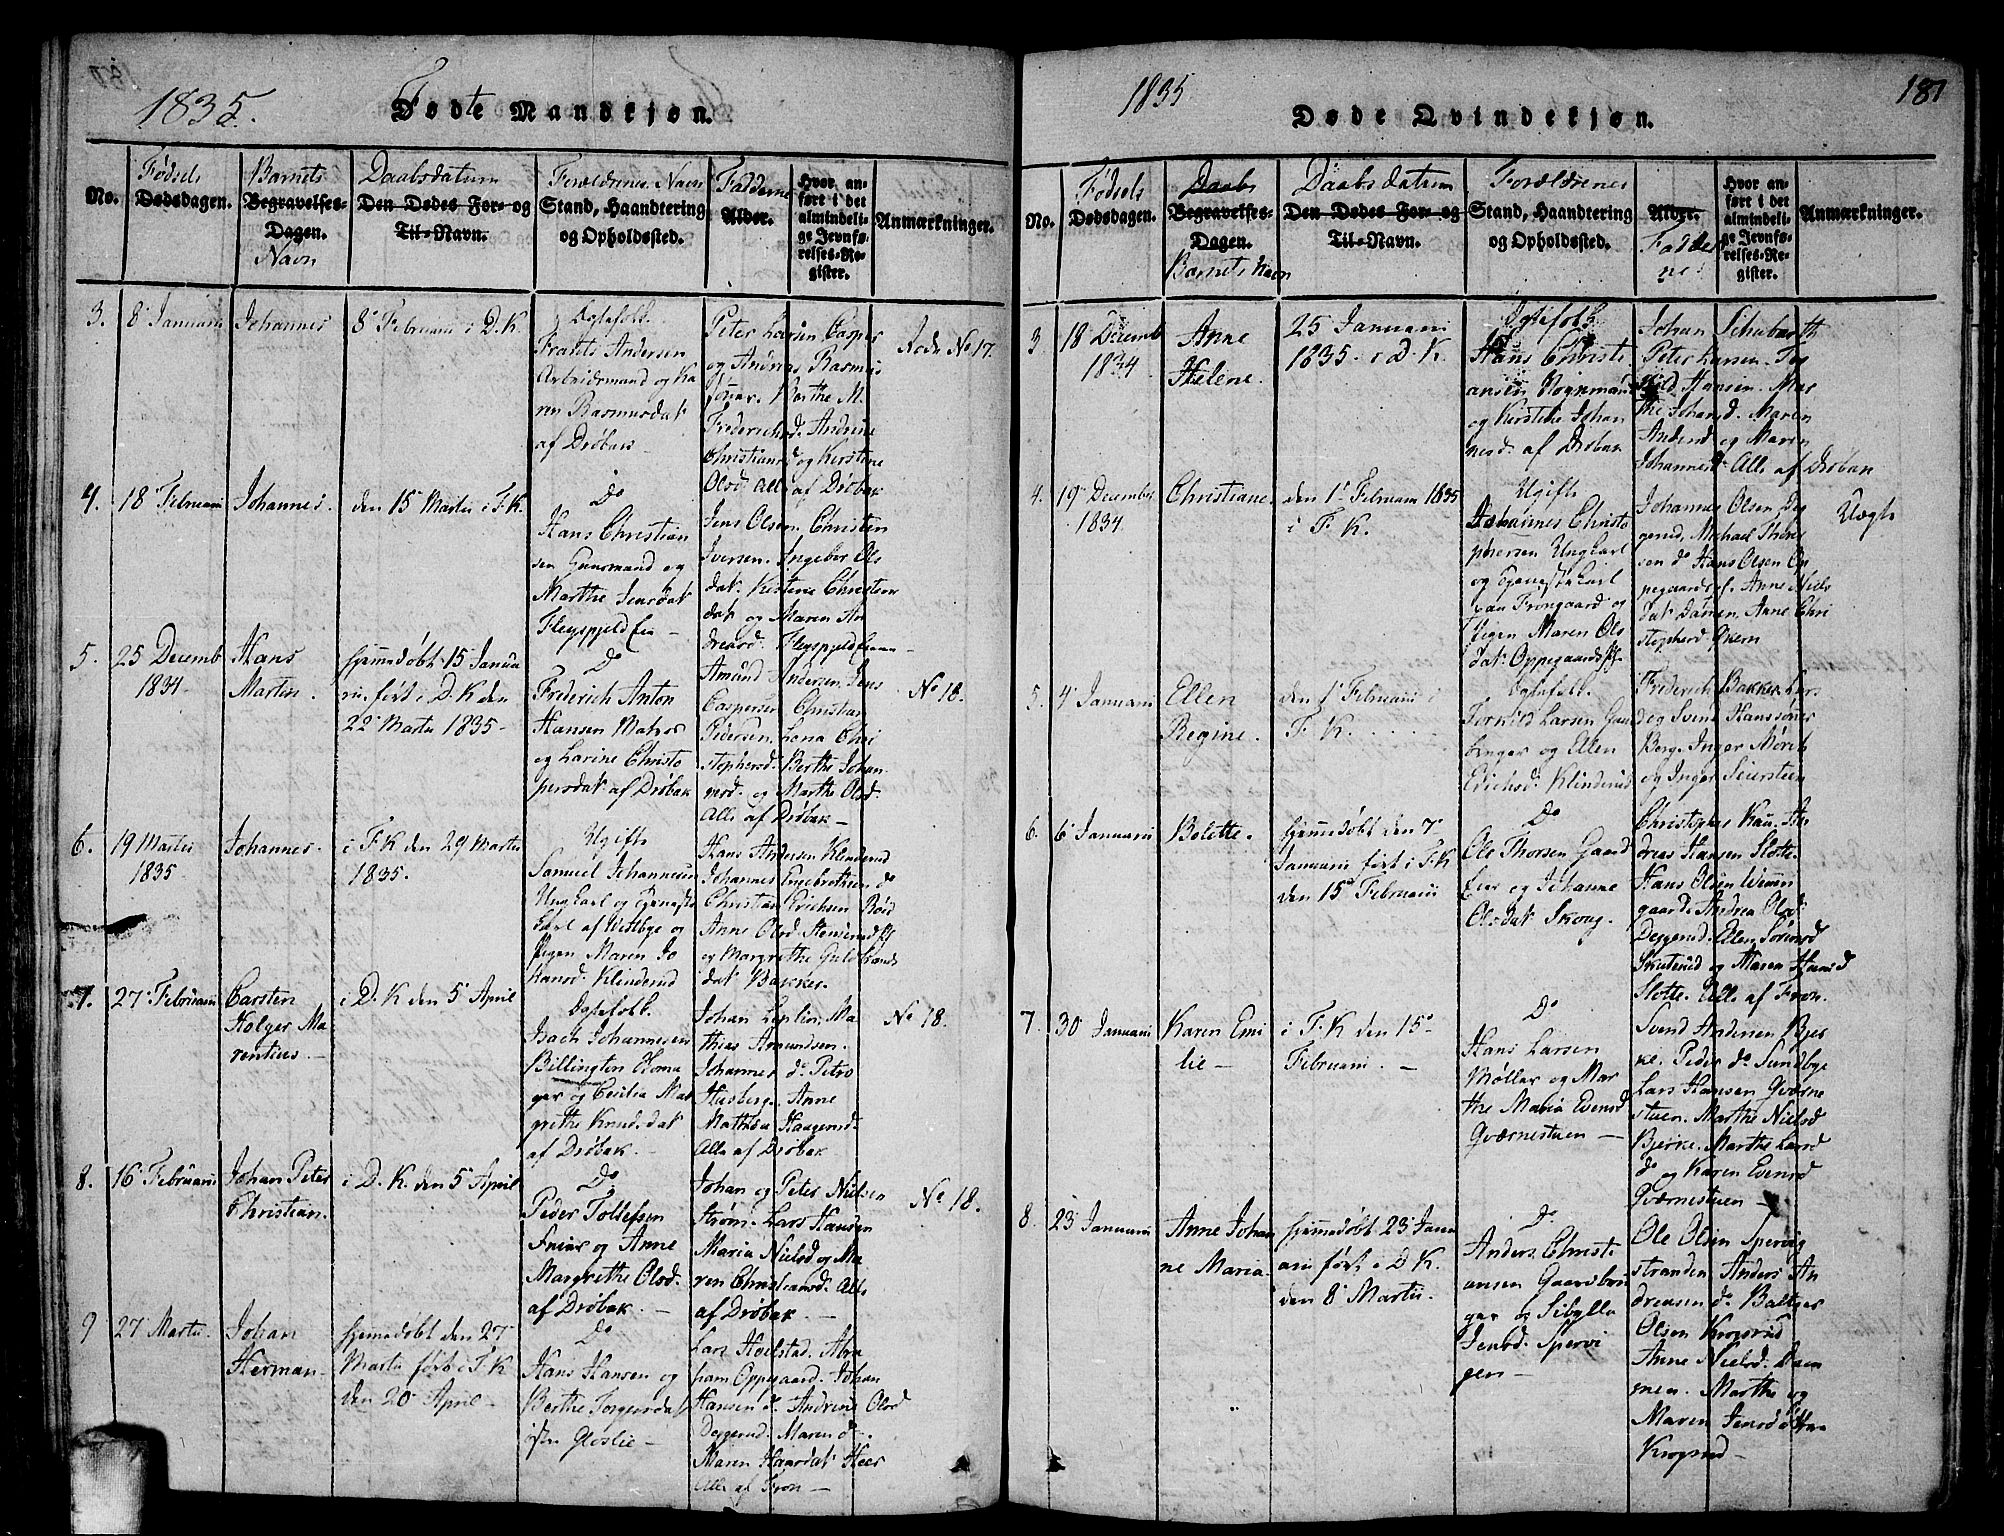 1835.
Fødte Mandkjøn.
No.
Fødsels
Dødsdagen.
Barnets
Begravelses-
Dagen.
Navn
Daabsdatum
Den Dødes For- og
Til-Navn.
Forældrenes Navn
Stand, Haandtering
og Opholdssted.
Fadderne
Alder.
Hvor an-
ført i det
almindeli-
ge Jevnfø-
relses-Re-
gister.
Anmærkninger.
3.
8 Januarii
Johannes
8de Februarii i D. K.
Ægtefolk.
Frants Andersen
Arbeidsmand og Ka
ren Rasmusdat
af Drøbak
Peter Larsen Casper
og Andreas Rasmus
Frederichsd. Andrine
Christiansd og Kerstine
Olsd. Alle af Drøbak
No 17.
4.
18 Februarii
Johannes.
den 15 Martii i F. K.
Do
Hans Christian
sen Huusmand og
Marthe Jensdat
Fleyspjeldeie -
Jens Olsen. Christen
Iversen. Ingebor Ols
dat. Kistine Christen
dat og Maren An
dreasd. Fleyspjeldeie -
5.
25 Decemb
1834.
Hans
Martin.
hjemmedøbt 15 Janua
rii, ført i D. K den
22 Martii 1835 -
Do
Frederich Anton
Hansen Matros
og Larine Christo
persdat af Drøbak
Amund Andersen. Jens
Caspersen Christian
Pedersen. Lena Chri
stophersd. Berthe Johan
nesd. og Marthe Olsd.
Alle af Drøbak -
No 18.
6.
19 Martii
1835
Johannes.
i F. K den 29 Martii
1835.
Ugifte
Samuel Johannesen
Ungkarl og Tjeneste
karl af Vestbye og
Pigen Maren Jo
hansd. Klinderud
Hans Andersen Klinderud
Johannes Engebrethsen do
Christian Erichsen
Anne Olsd. Stenserud
og Margrethe Guldbrands
dat Bakker.
7.
27 Februarii
Carsten
Holger Ma
rentius. -
i D. K den 5 April
Ægtefolk.
Bach Johannesen
Billington
og Cecilia Mar
grethe Knudsdat
af Drøbak. -
Johan Leplin. Ma
thias Amundsen.
Johannes do Petro
Husberg. Anne
Mathea Haagensd.
Alle af Drøbak
No 18.
8.
16 Februarii
Johan Peter
Christian.
i D. K. den 5 April
Do
Peder Tollefsen
Feier og Anne
Margrethe Olsd.
af Drøbak. -
Johan og Peter Nielsen
Strøm. Lars Hansen
Maria Nielsd og Ma
ren Christiansd. Alle
af Drøbak. -
No. 18.
9
27 Martii.
Johan
Herman.
hjemmedøbt den 27
Martii ført i F. K
den 20 April -
Do
Hans Hansen og
Berthe Torgersdat
østre Gloslie -
Lars Hoelstad. Abra
ham Oppegaard. Johan
Hansen do. Andrine Olsd
Deggerud. Maren do.
Maren Haarsdat Heer
Alle af Fron -
1835
Døde Qvindekjøn.
181
No.
Fødsels
Dødsdagen.
Daabs
Begravelses-
Dagen.
Barnets Navn
Daabsdatum
Den Dødes For- og
Til-Navn.
Forældrenes
Stand, Haandtering
og Opholdssted.
Alder.
Fadder
ne.
Hvor an-
ført i det
almindeli-
ge Jevnfø-
relses-Re-
gister.
Anmærkninger.
3
18 Decemb
1834
Anne
Helene.
25 Januarii
1835. i D. K.
Ægtefolk
Hans Christi
ansen Vognmand
og Kirstine Johan
nesd. af Drøbak
Johan Schubarth
Peter Larsen.
Hansen. Mar
the Johansd. Maren
Andersd og Maren
Johannesd. Alle af Drøbak
4.
19 December
1834.
Christiane
den 1 Februarii 1835
i F. K.
Ugifte
Johannes Christo
phersen Ungkarl
og Tjenestekarl
paa Frongaard og
Pigen Maren Ols
dat. Oppegaards
Johannes Olsen. Deg
gerud, Michael Thors
sen do Hans Olsen Op
pegaards . Anne Niels
dat Damen. Anne Chri
stophersd.
Uægte
5.
4 Januarii
Ellen
Regine.
den 1 Februarii i
F. K.
Ægtefolk.
Torkild Larsen Gaard
bruger og Ellen
Erichsd. Klinderud
Frederich Bakker. Lars
og Svend Hanssønner
Berg. Inger Mørck
og Inger Seiersteen
6.
6 Januarii
Bolette.
hjemmedøbt den 7
Januarii ført i F. K
den 15 Februarii
Do
Ole Thorsen Gaard
Eier og Johanne
Olsdat Skoug.
Christopher Kau. An
dreas Hansen Slotte.
Hans Olsen Wemm
gaard. Andrea Olsd.
Deggerud. Ellen Sørensd
Skuterud og Maren Hansd
Slotte. Alle af Fron.
7.
30 Januarii
Karen Emi
lie -
i F. K den 15
Februarii. -
Do
Hans Larsen
Møller og Mar
the Maria Evensd
Gværnestuen -
Svend Andersen Bjer
ke. Peder do Sundbye
Lars Hansen Gværne
stuen. Marthe Nielsd
Bjerke. Marthe Larsd
do og Karen Evensd
Gværnestuen -
8.
23 Januarii
Anne Johan
ne Maria.
hjemmedøbt 23 Janu
arii ført i D. K.
den 8 Martii.
Do
Anders Christi
ansen Gaardbru
ger og Sibylla
Jensd. Spervi
gen -
Ole Olsen Spervig
stranden Anders An
dreasen do Baltzer
Olsen Krogsrud
Anne Nielsd. Dam
men. Marthe og
Maren Jensd
Krogsrud -